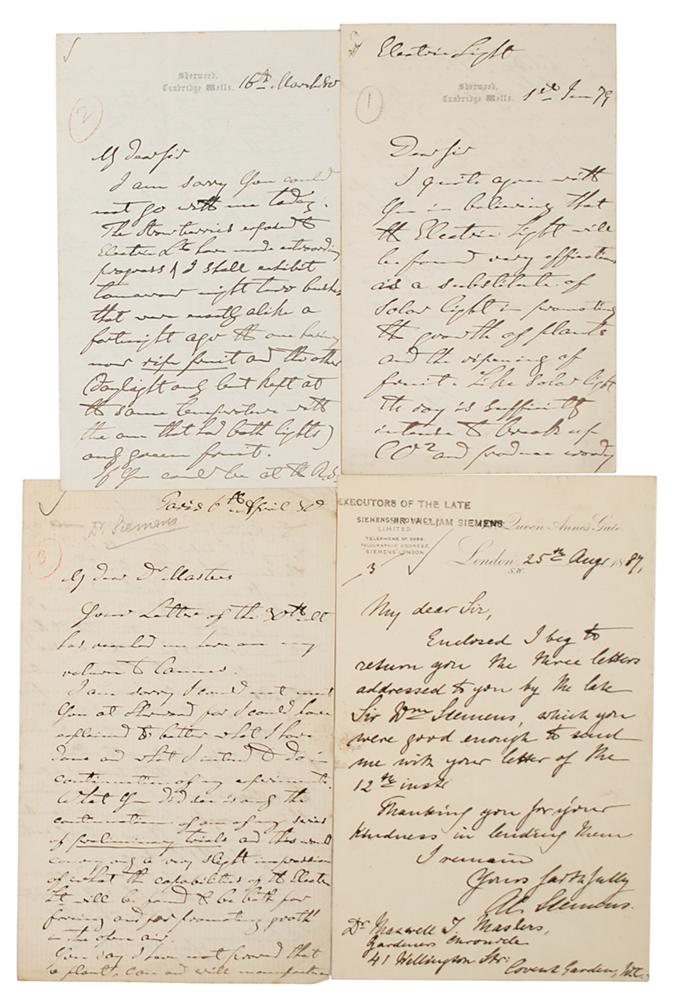 2
Sherwood,
Tunbridge Wells.
16th March 80
My dear Sir
I am sorry you could
not go with me today.
The Strawberries exposed to
Electric Lt have made extraordiny
progress & I shall exhibit
tomorrow night two bushes
that were exactly alike a
fortnight ago the one having
now ripe fruit and the other
(daylight only but kept at
the same temperature with
the one that had both lights)
only green fruit.
If you could be at the R.S.
Electric Light
1
Sherwood,
Tunbridge Wells.
1st Jan 79
Dear Sir
I quite agree with
you in believing that
the Electric Light will
be found very effective
as a substitute of
Solar light in promoting
the growth of plants
and the ripening of
fruit. Like Solar light
the ray is sufficiently
intense to break up
CO2 and produce woody
3
Paris 6th April 80
Dr Siemens
My dear Dr Masters
Your letter of the 30th ult
has reached me here on my
return to Cannes.
I am sorry I could not meet
you at Sherwood for I could have
explained to better what I have
done and what I intend to do in
continuation of my experiments.
What you did see is only the
continuation of one of my series
of preliminary trials and this would
convey only a very slight impression
of what the capabilities of the Electric
Lt will be found to be both for
forcing and for promoting growth
in the open air.
You say I have not proved that
a plant can and will manufacture
EXECUTORS OF THE LATE
SIR WILLIAM SIEMENS
SIEMENS BROTHERS & CO.
LIMITED.
TELEPHONE No 3089.
TELEGRAPHIC ADDRESS,
SIEMENS LONDON.
Queen Anne's Gate
3
London, 25th Augt 1887,
S.W.
My dear Sir,
Enclosed I beg to
return you the three letters
addressed to you by the late
Sir Wm Siemens, which you
were good enough to send
me with your letter of the
12th inst.
Thanking you for your
kindness in lending them
I remain
Yours faithfully
Al. Siemens.
Dr Maxwell T. Masters,
Gardeners Chronicle
41 Wellington Str.
Covent Garden, W.C.